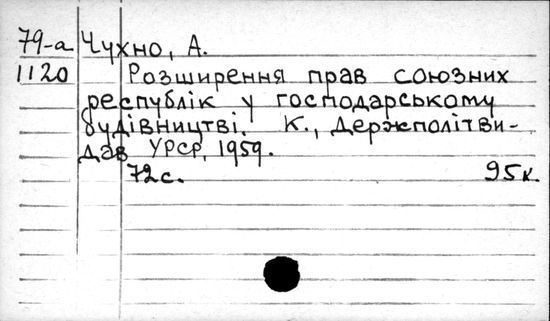 79-а Чухно, А.
1120 Розширення прав союзних
республік у господарському
будівництві. К., Держполітви-
дав УРСР, 1959.
72с. 95к.